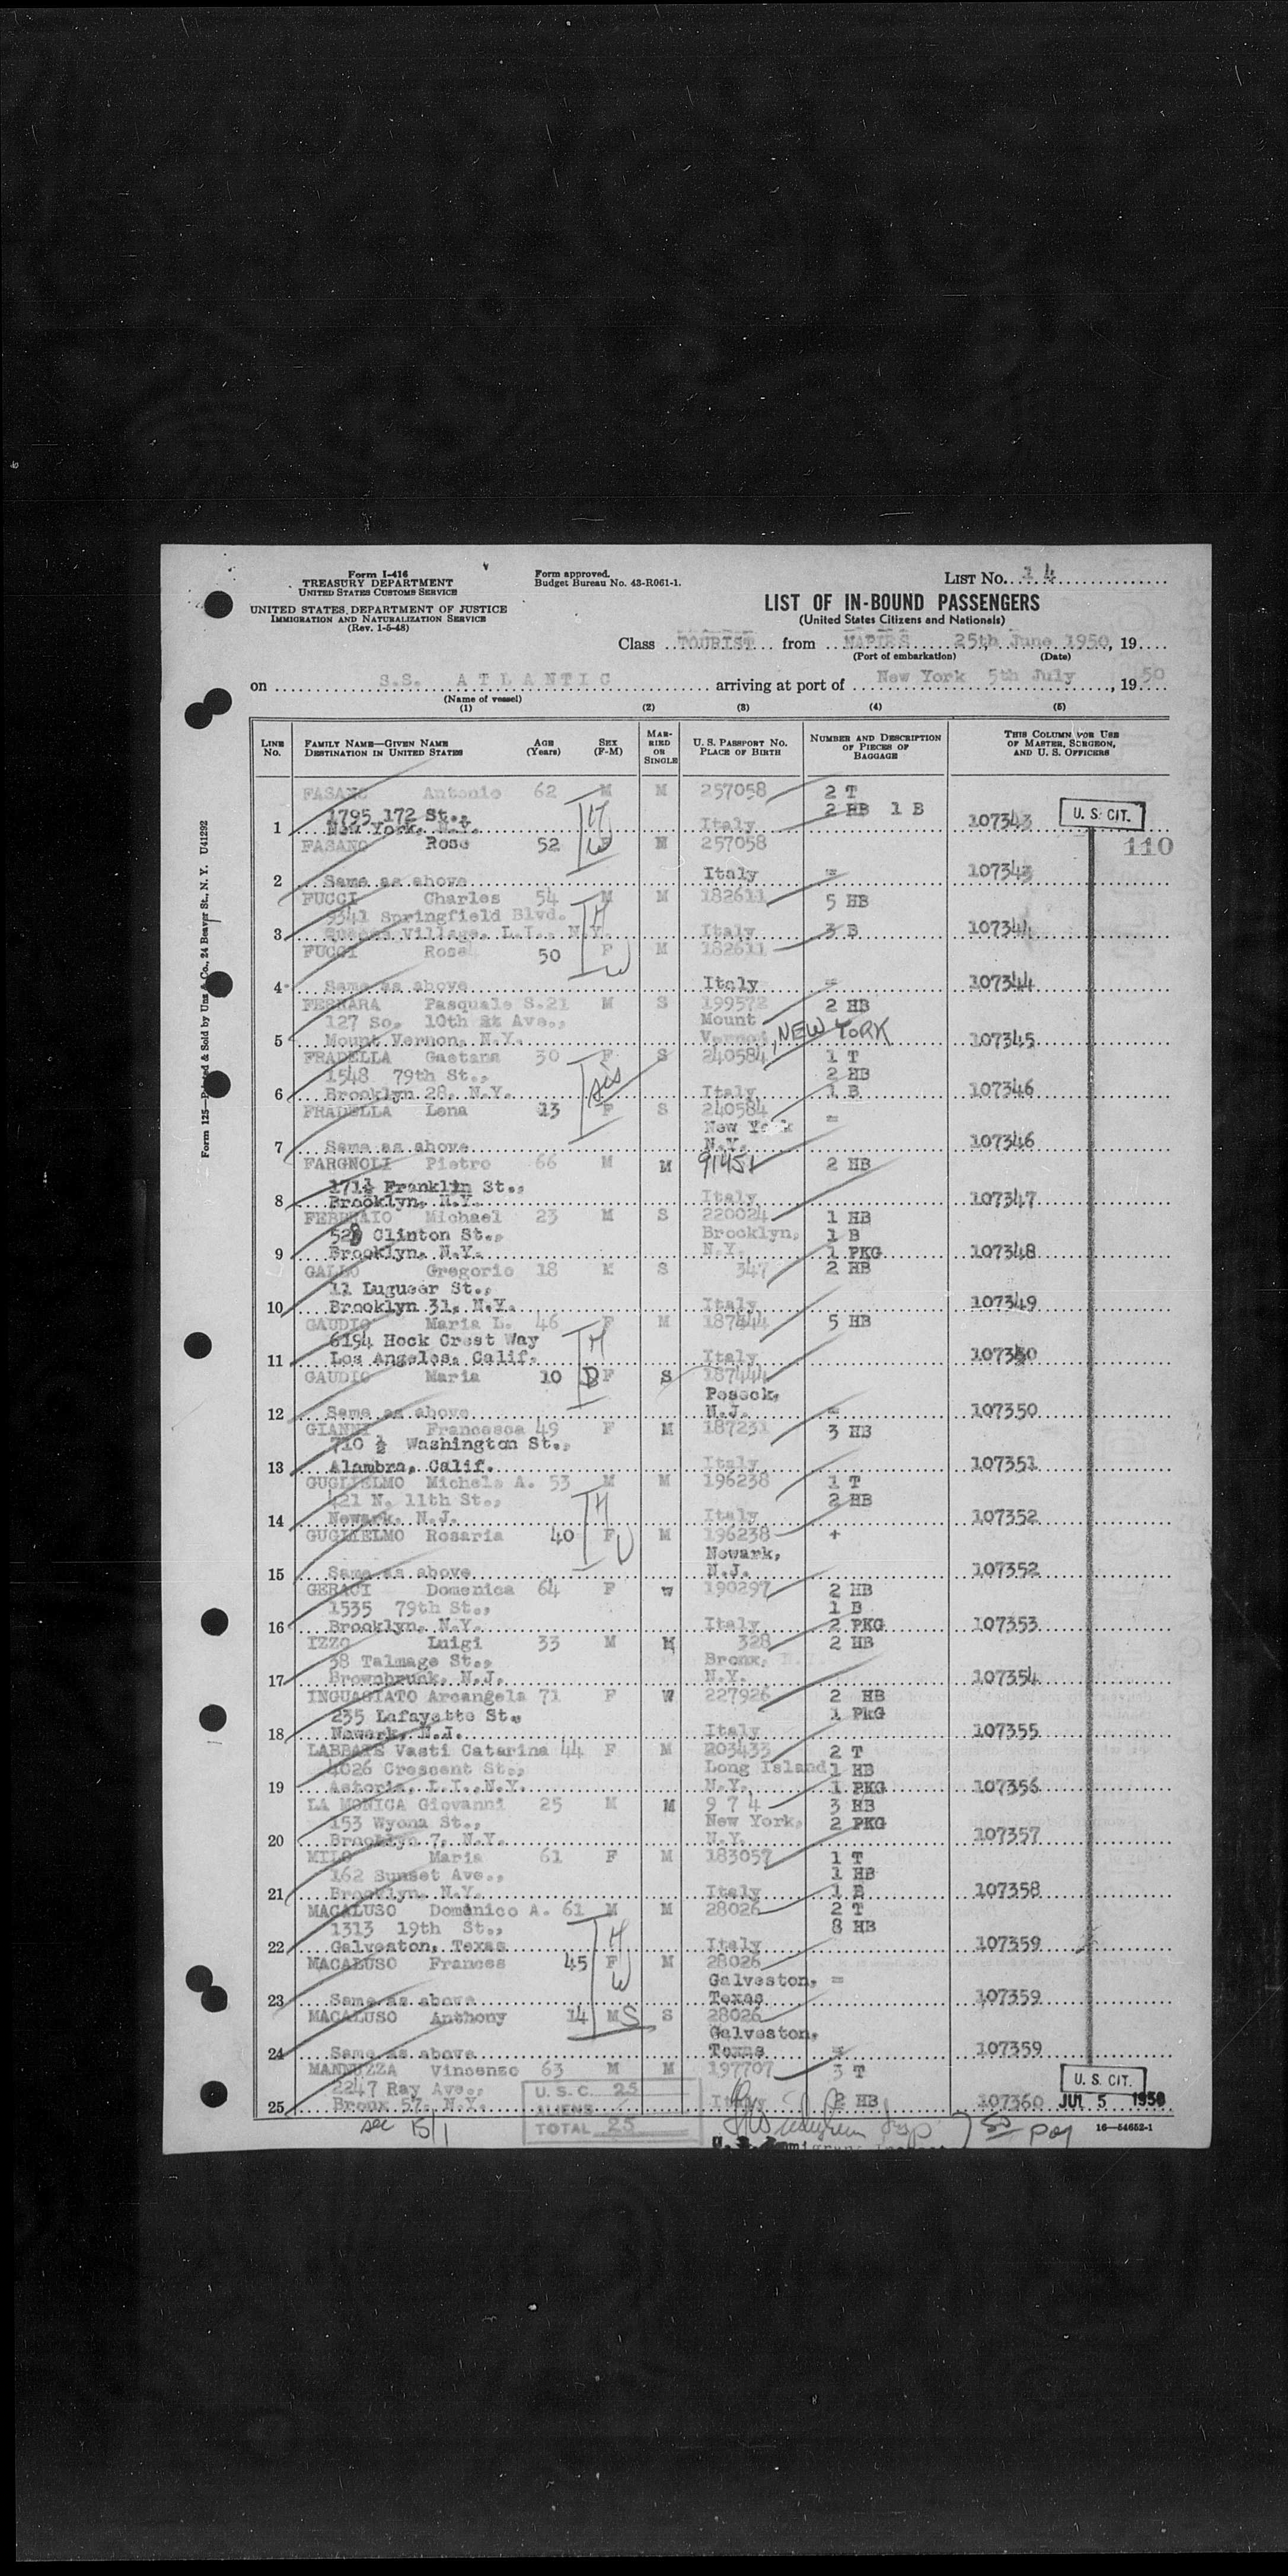 Form I-416
TREASURY DEPARTMENT
UNITED STATES CUSTOMS SERVICE
UNITED STATES DEPARTMENT OF JUSTICE
IMMIGRATION AND NATURALIZATION SERVICE
(Rev. 1-5-48)
Form approved.
Budget Bureau No. 43-R061-1.
LIST No. 14
LIST OF IN-BOUND PASSENGERS
(United States Citizens and Nationals)
Class TOURIST from NAPLES 25th June 1950, 19
(Port of embarkation) (Date)
on S.S. ATLANTIC arriving at port of New York 5th July, 19 50
(Name of vessel)
(1) (2) (3) (4) (5)
LINE No. FAMILY NAME—GIVEN NAME DESTINATION IN UNITED STATES AGE (Years) SEX (F-M) MARRIED OR SINGLE U. S. PASSPORT NO. PLACE OF BIRTH NUMBER AND DESCRIPTION OF PIECES OF BAGGAGE THIS COLUMN FOR USE OF MASTER, SURGEON, AND U. S. OFFICERS
FASANO Antonio 62 M M 257058 2 T
1795 172 St., 2 HB 1 B
1 New York, N.Y. H Italy 107343 U. S. CIT.
FASANO Rose 52 F W M 257058 110
2 Same as above Italy = 107343
FUCCI Charles 54 M M 182611 5 HB
9341 Springfield Blvd. H
3 Queens Village, L.I., N.Y. Italy 3 B 107344
FUCCI Rose 50 F W M 182611
4 Same as above Italy = 107344
FERRARA Pasquale S. 21 M S 199572 2 HB
127 So. 10th St Ave., Mount
5 Mount Vernon, N.Y. Vernon, NEW YORK 107345
FRADELLA Gaetana 30 F S 240584 1 T
1548 79th St., sis 2 HB
6 Brooklyn 28, N.Y. Italy 1 B 107346
FRADELLA Lena 13 F S 240584
New York =
7 Same as above N.Y. 107346
FARGNOLI Pietro 66 M M 91451 2 HB
171½ Franklin St.,
8 Brooklyn, N.Y. Italy 107347
FEBBRAIO Michael 23 M S 220024 1 HB
528 Clinton St., Brooklyn, 1 B
9 Brooklyn, N.Y. N.Y. 1 PKG 107348
GALLO Gregorio 18 M S 347 2 HB
11 Lugueer St.,
10 Brooklyn 31, N.Y. Italy 107349
GAUDIO Maria L. 46 F M 187444 5 HB
6194 Hock Crest Way M
11 Los Angeles, Calif. Italy 107350
GAUDIO Maria 10 D F S 187444
Peseck,
12 Same as above N.J. = 107350
GIANNI Francesca 49 F M 187231 3 HB
710 ½ Washington St.,
13 Alambra, Calif. Italy 107351
GUGLIELMO Michele A. 53 M M 196238 1 T
421 N. 11th St., H 2 HB
14 Newark, N.J. Italy 107352
GUGLIELMO Rosaria 40 F W M 196238 +
Newark,
15 Same as above N.J. 107352
GERACI Domenica 64 F W 190297 2 HB
1535 79th St., 1 B
16 Brooklyn, N.Y. Italy 2 PKG 107353
IZZO Luigi 33 M M 328 2 HB
38 Talmage St., Bronx,
17 Brownbruck, N.J. N.Y. 107354
INGUAGIATO Arcangela 71 F W 227926 2 HB
235 Lafayette St. 1 PkG
18 Newark, N.J. Italy 107355
LABBATE Vasti Catarina 44 F M 203433 2 T
4026 Crescent St., Long Island 1 HB
19 Astoria, L.I., N.Y. N.Y. 1 PKG 107356
LA MONICA Giovanni 25 M M 974 3 HB
153 Wyona St., New York, 2 PKG
20 Brooklyn 7, N.Y. N.Y. 107357
MILO Maria 61 F M 183057 1 T
162 Sunset Ave., 1 HB
21 Brooklyn, N.Y. Italy 1 B 107358
MACALUSO Domenico A. 61 M M 28026 2 T
1313 19th St., H 8 HB
22 Galveston, Texas Italy 107359
MACALUSO Frances 45 F W M 28026
Galveston, =
23 Same as above Texas 107359
MACALUSO Anthony 14 M S S 28026
Galveston,
24 Same as above Texas = 107359
MANNUZZA Vincenzo 63 M M 197707 3 T
2247 Ray Ave., U. S. CIT.
25 Bronx 57, N.Y. Italy 2 HB 107360 JUL 5 1950
U. S. C. 25
ALIENS
TOTAL 25
sec 15/1
16—54652-1
Form 125—Printed & Sold by Unz & Co., 24 Beaver St., N. Y. U41292